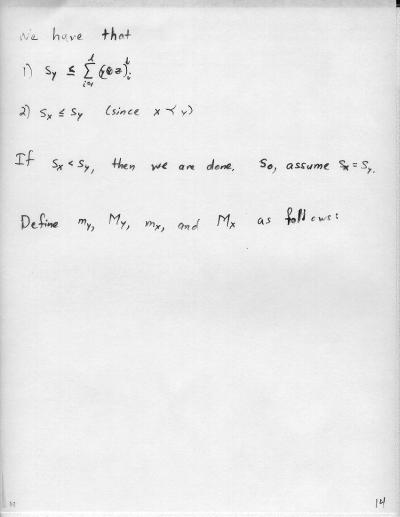 We have that
1) Sy ≤ Σ_{i=1}^{d} (y⊗z)↓i
2) Sx ≤ Sy (since x ≺ y)
If Sx < Sy, then we are done. So, assume Sx = Sy.
Define my, My, mx, and Mx as follows:
14